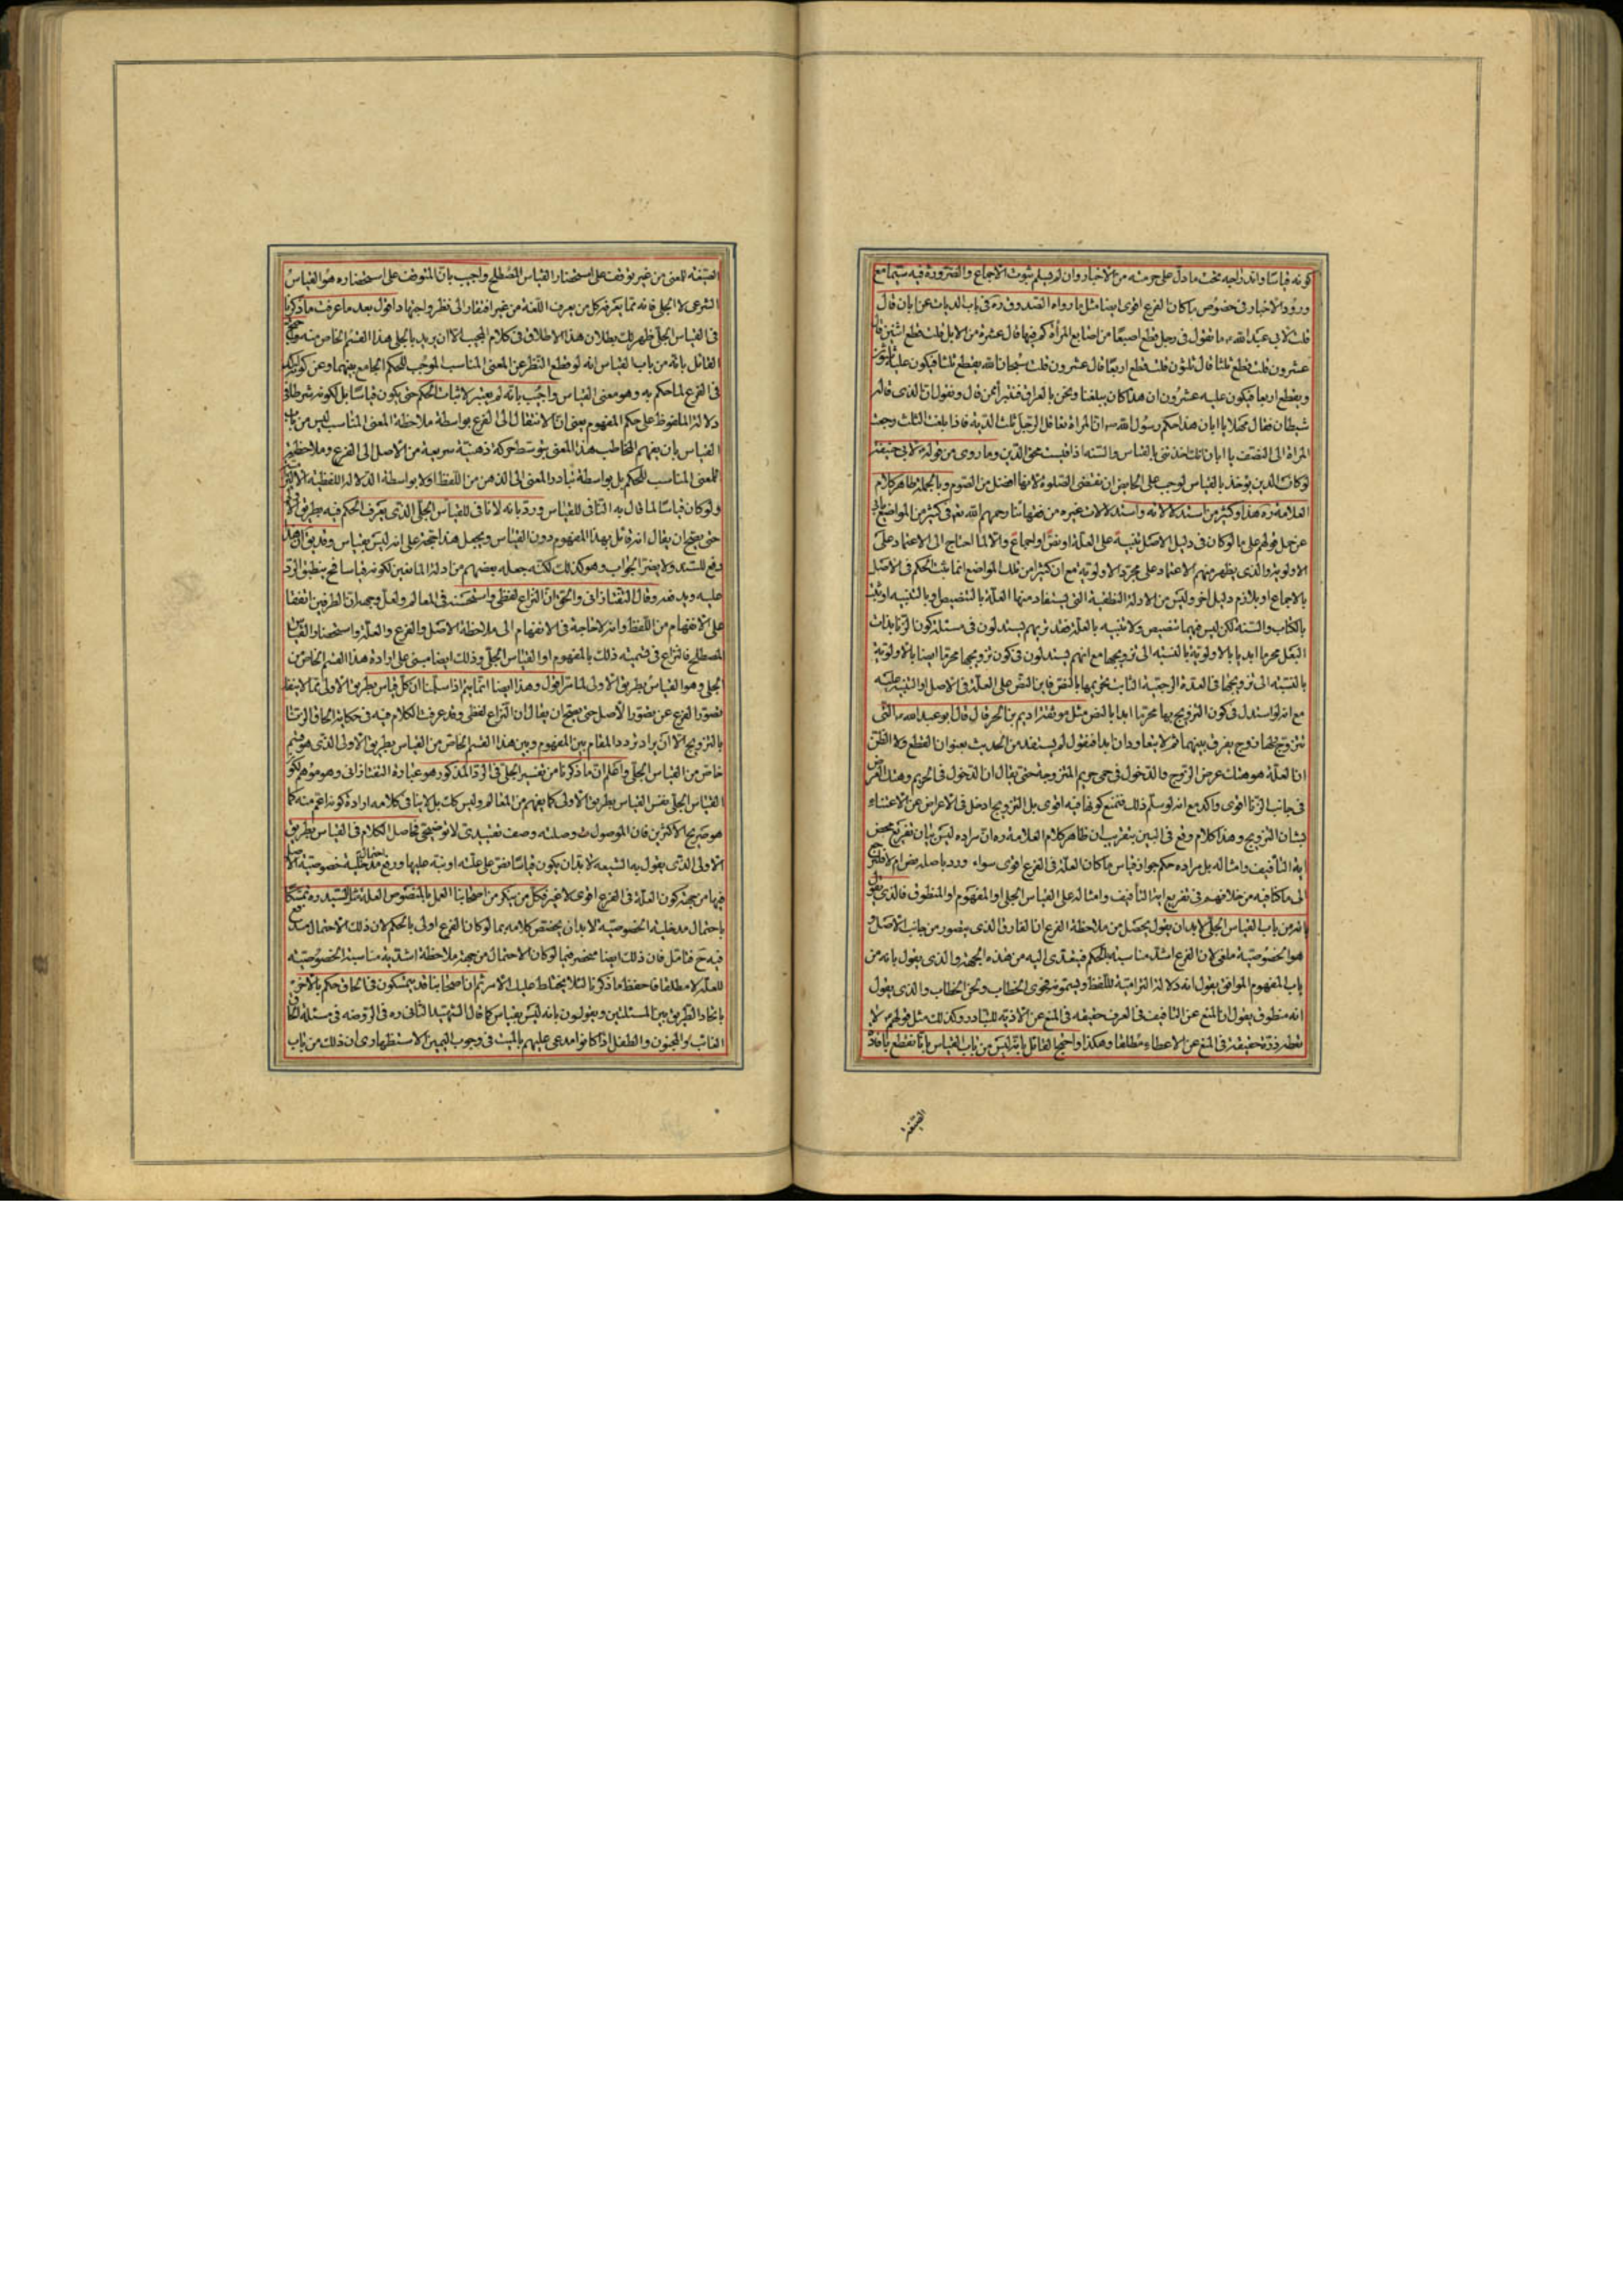 كونه قياسا واندراجه تحت ما دل على حرمته من الاخبار وان لم يسلم ثبوت الاجماع والضرورة فيه سيما مع
ورود الاخبار في خصوص ما كان الفرع اقوى ايضا مثل ما رواه الصدوق ره في باب الديات عن ابان قال
قلت لابي عبد الله ع ما تقول في رجل قطع اصبعا من اصابع المرأة كم فيها قال عشرة من الابل قلت قطع اثنين قال
عشرون قلت قطع ثلثا قال ثلثون قلت قطع اربعا قال عشرون قلت سبحان الله يقطع ثلثا فيكون عليه ثلثون
ويقطع اربعا فيكون عليه عشرون ان هذا كان يبلغنا ونحن بالعراق فنتبرأ ممن قال ونقول ان الذي قاله
شيطان فقال مهلا يا ابان هذا حكم رسول الله ص ان المرأة تعاقل الرجل ثلث الدية فاذا بلغت الثلث رجعت
المرأة الى النصف يا ابان انك اخذتني بالقياس والسنة اذا قيست محق الدين وما روى من قوله ع لابي حنيفة
لو كان الدين يؤخذ بالقياس لوجب على الحايض ان تقضى الصلوة لانها افضل من الصوم وبالجملة ظاهر كلام
العلامة ره هذا وكثير من استدلالاته واستدلالات غيره من فقهائنا رحمهم الله تعم في كثير من المواضع يابى
عن حمل قولهم على ما لو كان في دليل الاصل تنبيه على العلة او نص او اجماع والا لما احتاج الى الاعتماد على
الاولوية والذي يظهر منهم الاعتماد على مجرد الاولوية مع ان كثيرا من تلك المواضع انما يثبت الحكم في الاصل
بالاجماع او بلازم دليل اخر وليس من الادلة اللفظية التي يستفاد منها العلة بالتنصيص وبالتنبيه او يثبت
بالكتاب والسنة لكن ليس فيهما تنصيص ولا تنبيه بالعلة فقد تريهم يستدلون في مسئلة كون الزنا بذات
البعل محرما ابديا بالاولوية بالنسبة الى تزويجها مع انهم يستدلون في كون تزويجها محرما ايضا بالاولوية
بالنسبة الى تزويجها في العدة الرجعية الثابت تحريمها بالنص فاين النص على العلة في الاصل او التنبيه عليه
مع انه لو استدل في كون التزويج بها محرما ابدا بالنص مثل موثقة اديم بن الحر قال قال ابو عبد الله ع التى
تتزوج ولها زوج يفرق بينهما ثم لا يتعاودان ابدا فنقول لم يستفد من الحديث بعنوان القطع ولا الظن
ان العلة هو هتك عرض الزوج والدخول في حمى حريم المتزوجة حتى يقال ان الدخول في الحريم وهتك العرض
في جانب الزنا اقوى واكد مع انه لو سلم ذلك فنمنع كونها فيه اقوى بل التزويج ادخل في الاعراض عن الاعتناء
بشان التزويج وهذا كلام وقع في البين بتقريب ان ظاهر كلام العلامة ره ان مراده ليس بيان تفريع محض
اية التأفيف وامثاله بل مراده حكم جواز قياس ما كان العلة في الفرع اقوى سواء ورد باصله نص ام لا فلنرجع
الى ما كنا فيه من خلافهم في تفريع اية التأفيف وامثاله على القياس الجلى او المفهوم او المنطوق فالذى يقول
انه من باب القياس الجلى لا بد ان يقول يحصل من ملاحظة الفرع ان الفارق الذي يتصور من جانب الاصل و
هو الخصوصية ملغى لان الفرع اشد مناسبة بالحكم فيتعدى اليه من هذه الجهة والذى يقول بانه من
باب المفهوم الموافق يقول انه دلالة التزامية للفظ ويسمونه بفحوى الخطاب ولحن الخطاب والذى يقول
انه منطوق يقول ان المنع عن التافيف في العرف حقيقة في المنع عن الاذية للتبادر وكذلك مثل قولهم لا
تعطه ذرة حقيقة في المنع عن الاعطاء مطلقا وهكذا واحتج القائل بانه ليس من باب القياس بانا نقطع بافادة
الصيغة
الصيغة للمعنى من غير توقف على استحضار القياس المصطلح واجيب بان المتوقف على استحضاره هو القياس
الشرعى لا الجلى فانه مما يعرفه كل من يعرف اللغة من غير افتقار الى نظر واجتهاد اقول بعد ما عرفت ما ذكرنا
في القياس الجلى ظهر لك بطلان هذا الاطلاق في كلام المجيب الا ان يريد بالجلى هذا القسم الخاص منه وحجة
القائل بانه من باب القياس انه لو قطع النظر عن المعنى المناسب الموجب للحكم الجامع بينهما وعن كونه اكد
في الفرع لما حكم به وهو معنى القياس واجيب بانه لم يعتبر لاثبات الحكم حتى يكون قياسا بل لكونه شرطا في
دلالة الملفوظ على حكم المفهوم يعنى ان الانتقال الى الفرع بواسطة ملاحظة المعنى المناسب ليس من باب
القياس بان يفهم المخاطب هذا المعنى بتوسط حركة ذهنية سريعة من الاصل الى الفرع وملاحظة
المعنى المناسب للحكم بل بواسطة تبادر المعنى الى الذهن من اللفظ او لا بواسطة الدلالة اللفظية الالتزامية
ولو كان قياسا لما قال به النافى للقياس ورد بانه لا نافى للقياس الجلى الذى يعرف الحكم فيه بطريق الاولى
حتى يصح ان يقال انه قائل بهذا المفهوم دون القياس ويجعل هذا حجة على انه ليس بقياس وقد يق ان هذا
دفع للسند ولا يضر الجواب وهو كذلك لكنه جعله بعضهم من ادلة المانعين لكونه قياسا فح ينطبق الرد
عليه ويدفعه وقال التفتازانى والحق ان النزاع لفظى واستحسنه في المعالم ولعل وجهه ان الطرفين اتفقا
على الانفهام من اللفظ وانه لا حاجة في الانفهام الى ملاحظة الاصل والفرع والعلة واستحضار القياس
المصطلح فالنزاع في تسميته ذلك بالمفهوم او القياس الجلى وذلك ايضا مبنى على ارادة هذا القسم الخاص من
الجلى وهو القياس بطريق الاولى لما مر اقول وهذا ايضا انما يتم اذا سلمنا ان كل قياس بطريق الاولى مما لا ينفك
تصور الفرع عن تصور الاصل حتى يصح ان يقال ان النزاع لفظى وقد عرفت الكلام فيه في حكاية الحاق الزنا
بالتزويج الا ان يراد تردد المقام بين المفهوم وبين هذا القسم الخاص من القياس بطريق الاولى الذى هو قسم
خاص من القياس الجلى واعلم ان ما ذكرنا من تفسير الجلى في الرد المذكور هو عبارة التفتازانى وهو موهم لكون
القياس الجلى نفس القياس بطريق الاولى كما يفهم من المعالم وليس كك بل لا ينافى كلامه ارادة كونه اعم منه كما
هو صريح الاكثرين فان الموصول مع وصلته وصف تقييدى لا توضيحى فحاصل الكلام في القياس بطريق
الاولى الذى يقول به الشيعة لا بد ان يكون قياسا نص على علته او نبه عليها ورفع احتمال مدخلية خصوصية الاصل
فيها من جهة كون العلة في الفرع اقوى لا غير فكل من ينكر من اصحابنا العمل بالمنصوص العلة مثل السيد ره تمسكا
باحتمال مدخلية الخصوصية لا بد ان يختص كلامه بما لو كان الفرع اولى بالحكم لان ذلك الاحتمال مندفع
فيه ح فتامل فان ذلك ايضا منحصر فيما لو كان الاحتمال من جهة ملاحظة اشدية مناسبة الخصوصية
للعلة لا مطلقا فاحفظ ما ذكرنا لئلا يختلط عليك الامر ثم ان اصحابنا قد يتمسكون في الحاق حكم بالاخر
باتحاد الطريق بين المسئلتين ويقولون بانه ليس بقياس كما قال الشهيد الثانى ره في الروضة في مسئلة الحاق
الغائب والمجنون والطفل اذا كانوا مدعى عليهم بالميت في وجوب اليمين الاستظهارى ان ذلك من باب